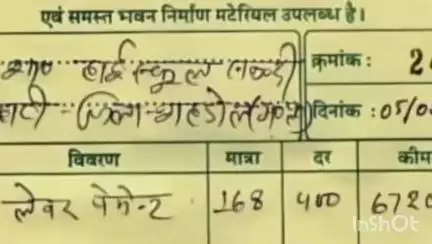 एवं समस्त भवन निर्माण मटेरियल उपलब्ध है।
हाई स्कूल क्रमांक : 2
जिला शहडोल दिनांक : 05/0
विवरण मात्रा दर कीम
लेबर पेमेन्ट 168 400 6720
InShOt